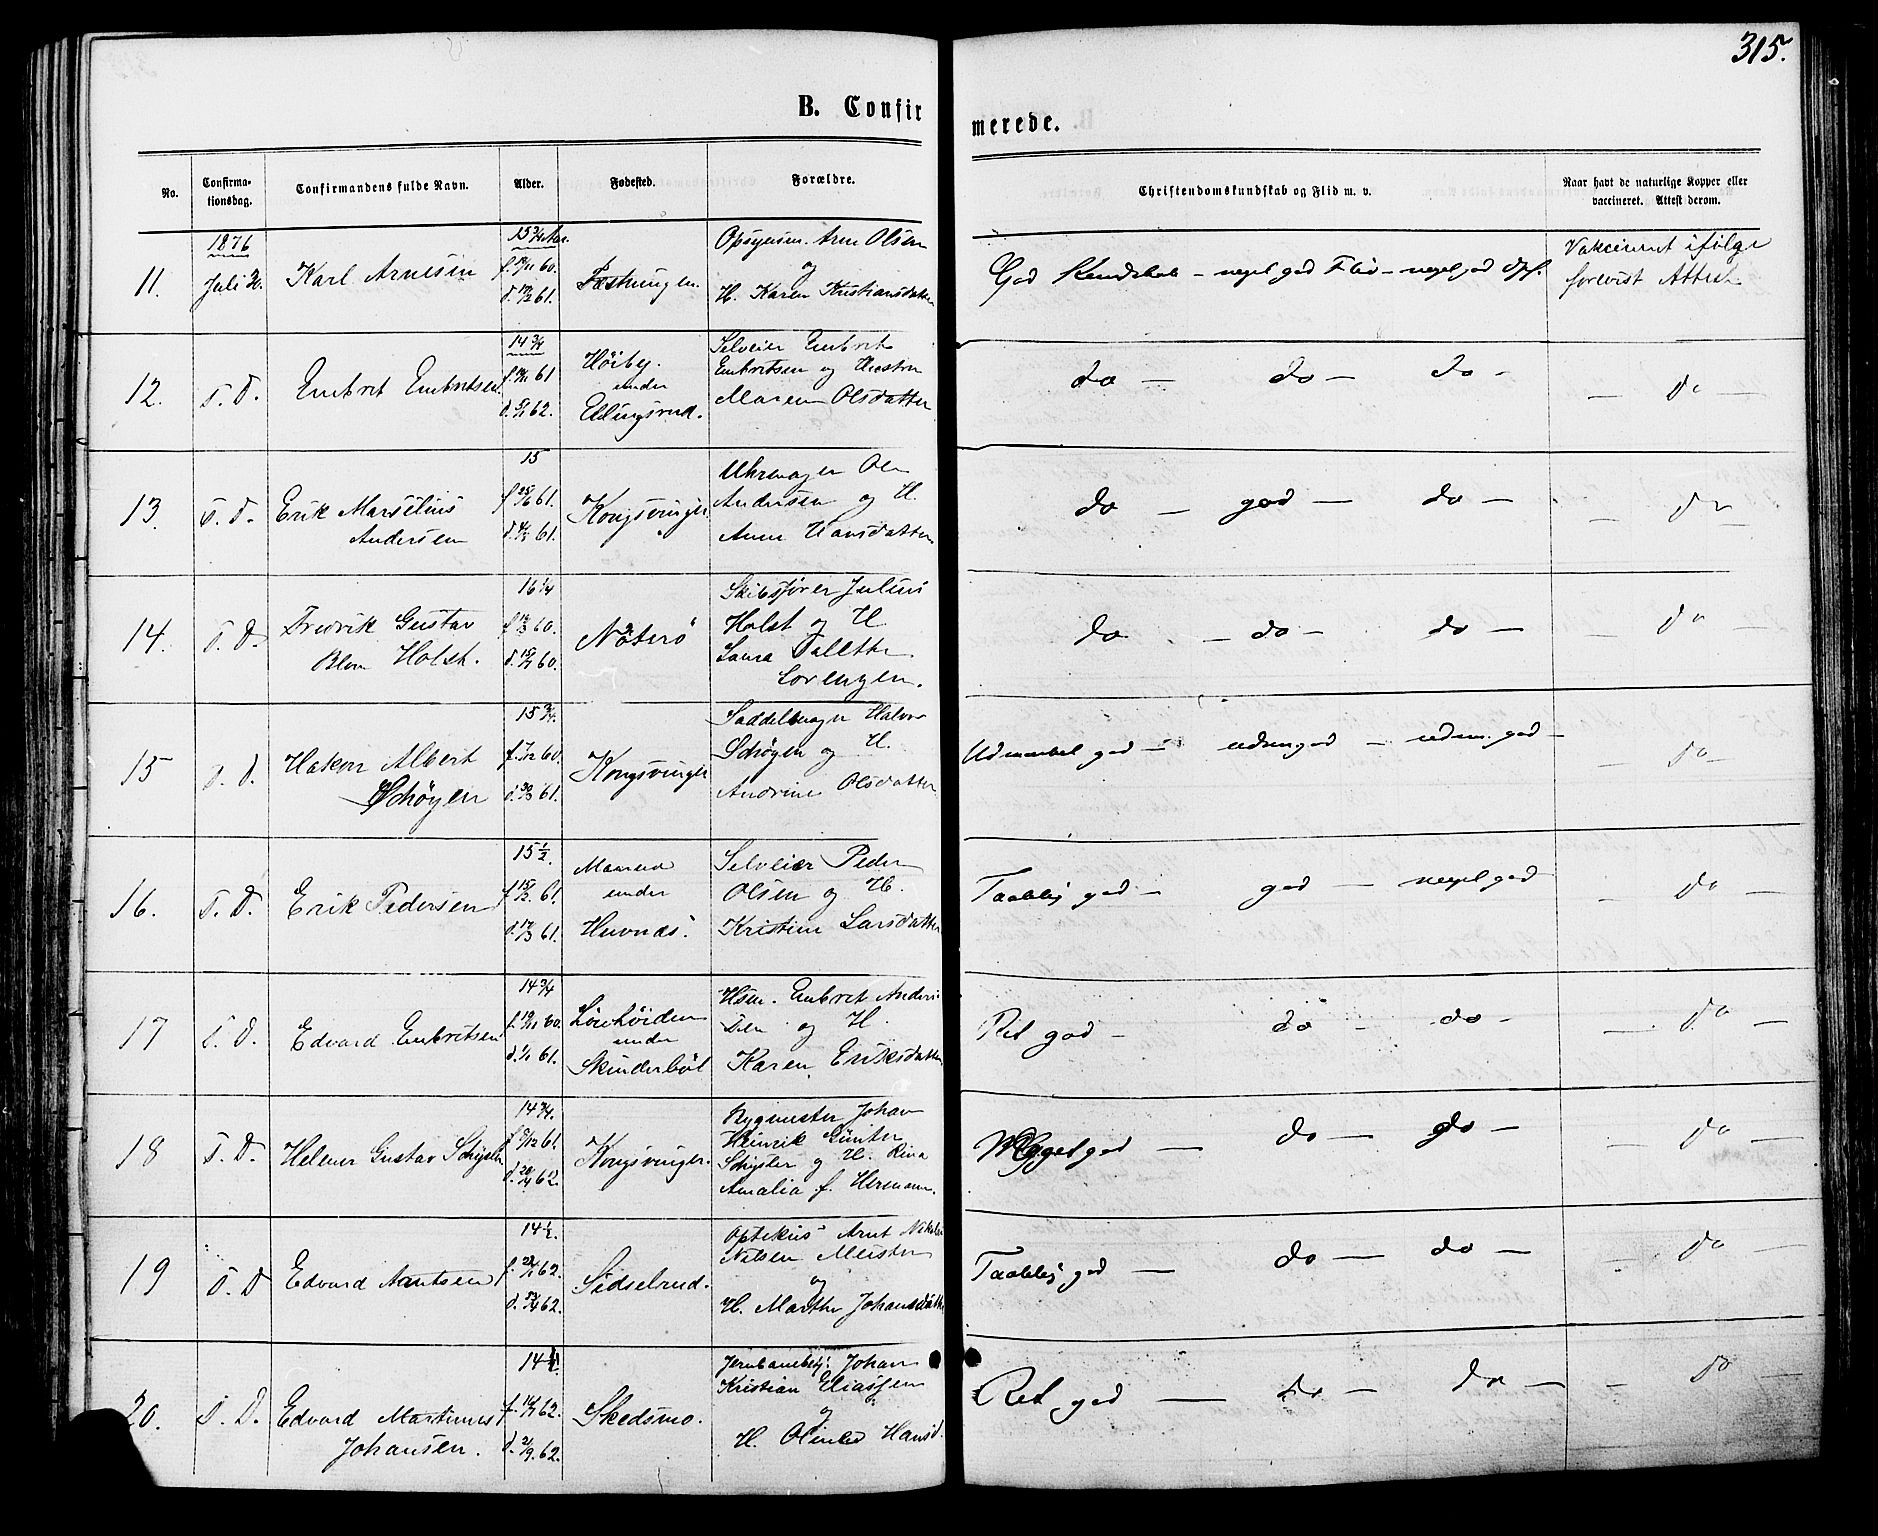 315.
B. Confir
merede.
No.
Confirma-
tionsdag.
Confirmandens fulde Navn.
Alder.
Fødested.
Forældre.
Christendomskundskab og Flid m. v.
Naar havt de naturlige Kopper eller
vaccineret. Attest derom.
1876
11.
Juli
Karl Arnesen
15 3/4 Aar.
60.
61.
Fæstningen
Opsynsm. Arne Olsen
og
H. Karen Kristiansdatter
God Kundskab - meget god Flid - meget god Opf.
Vakcineret ifølge
forevist Attest
12.
S. D.
Embret Embretsen
14 3/4
61
62.
Høiby
under
Ellingsrud.
Selveier Embret
Embretsen og Hustru
Maren Olsdatter
do - do - do -
- do -
13.
S. D.
Erik Marselius
Andersen
15
61.
61.
Kongsvinger
Uhrmager Ole
Andersen og H.
Anne Hansdatter
do - god - do -
- do -
14.
S. D.
Fredrik Gustav
Blom Holst.
16 1/4
60.
60.
Nøterø
Skibsfører Julius
Holst og H
Laura
Lorenzen.
do - do - do -
- do -
15
S. D.
Hakon Albert
Schøyen
15 3/4.
60.
61.
Kongsvinger
Saddelmager Halvor
Schøyen og H.
Andrine Olsdatter
Udmærket god - udm god - udm. god -
- do -
16.
S. D.
Erik Pedersen
15 1/2.
61.
61.
under
Selveier Peder
Olsen og H.
Kristine Larsdatter
Taalelig god - god - meget god
- do -
17
S. D.
Edvard Embretsen
14 3/4
60.
61.
under
Skinderbøl
Hsm. Embret Anders
sen og H.
Karen Eriksdatter
Ret god - do - do -
- do -
18
S. D.
Helmer Gustav
14 3/4.
61.
62.
Kongsvinger.
Johan
Heinrik Günter
og H. Rina
Amalia f. Hermann.
Meget god - do - do -
- do -
19
S. D
Edvard Arntsen
14 1/2.
62.
62.
Sidselrud.
Arnt
og
H. Marthe Johansdatter
Taalelig god - do - do -
- do -
20.
S. D.
Edvard Martinus
Johansen.
14
62.
62.
Skedsmo.
Jernbanebetj: Johan
Kristian Eliassen
og
H. Hansd.
Ret god - do - do -
- do -